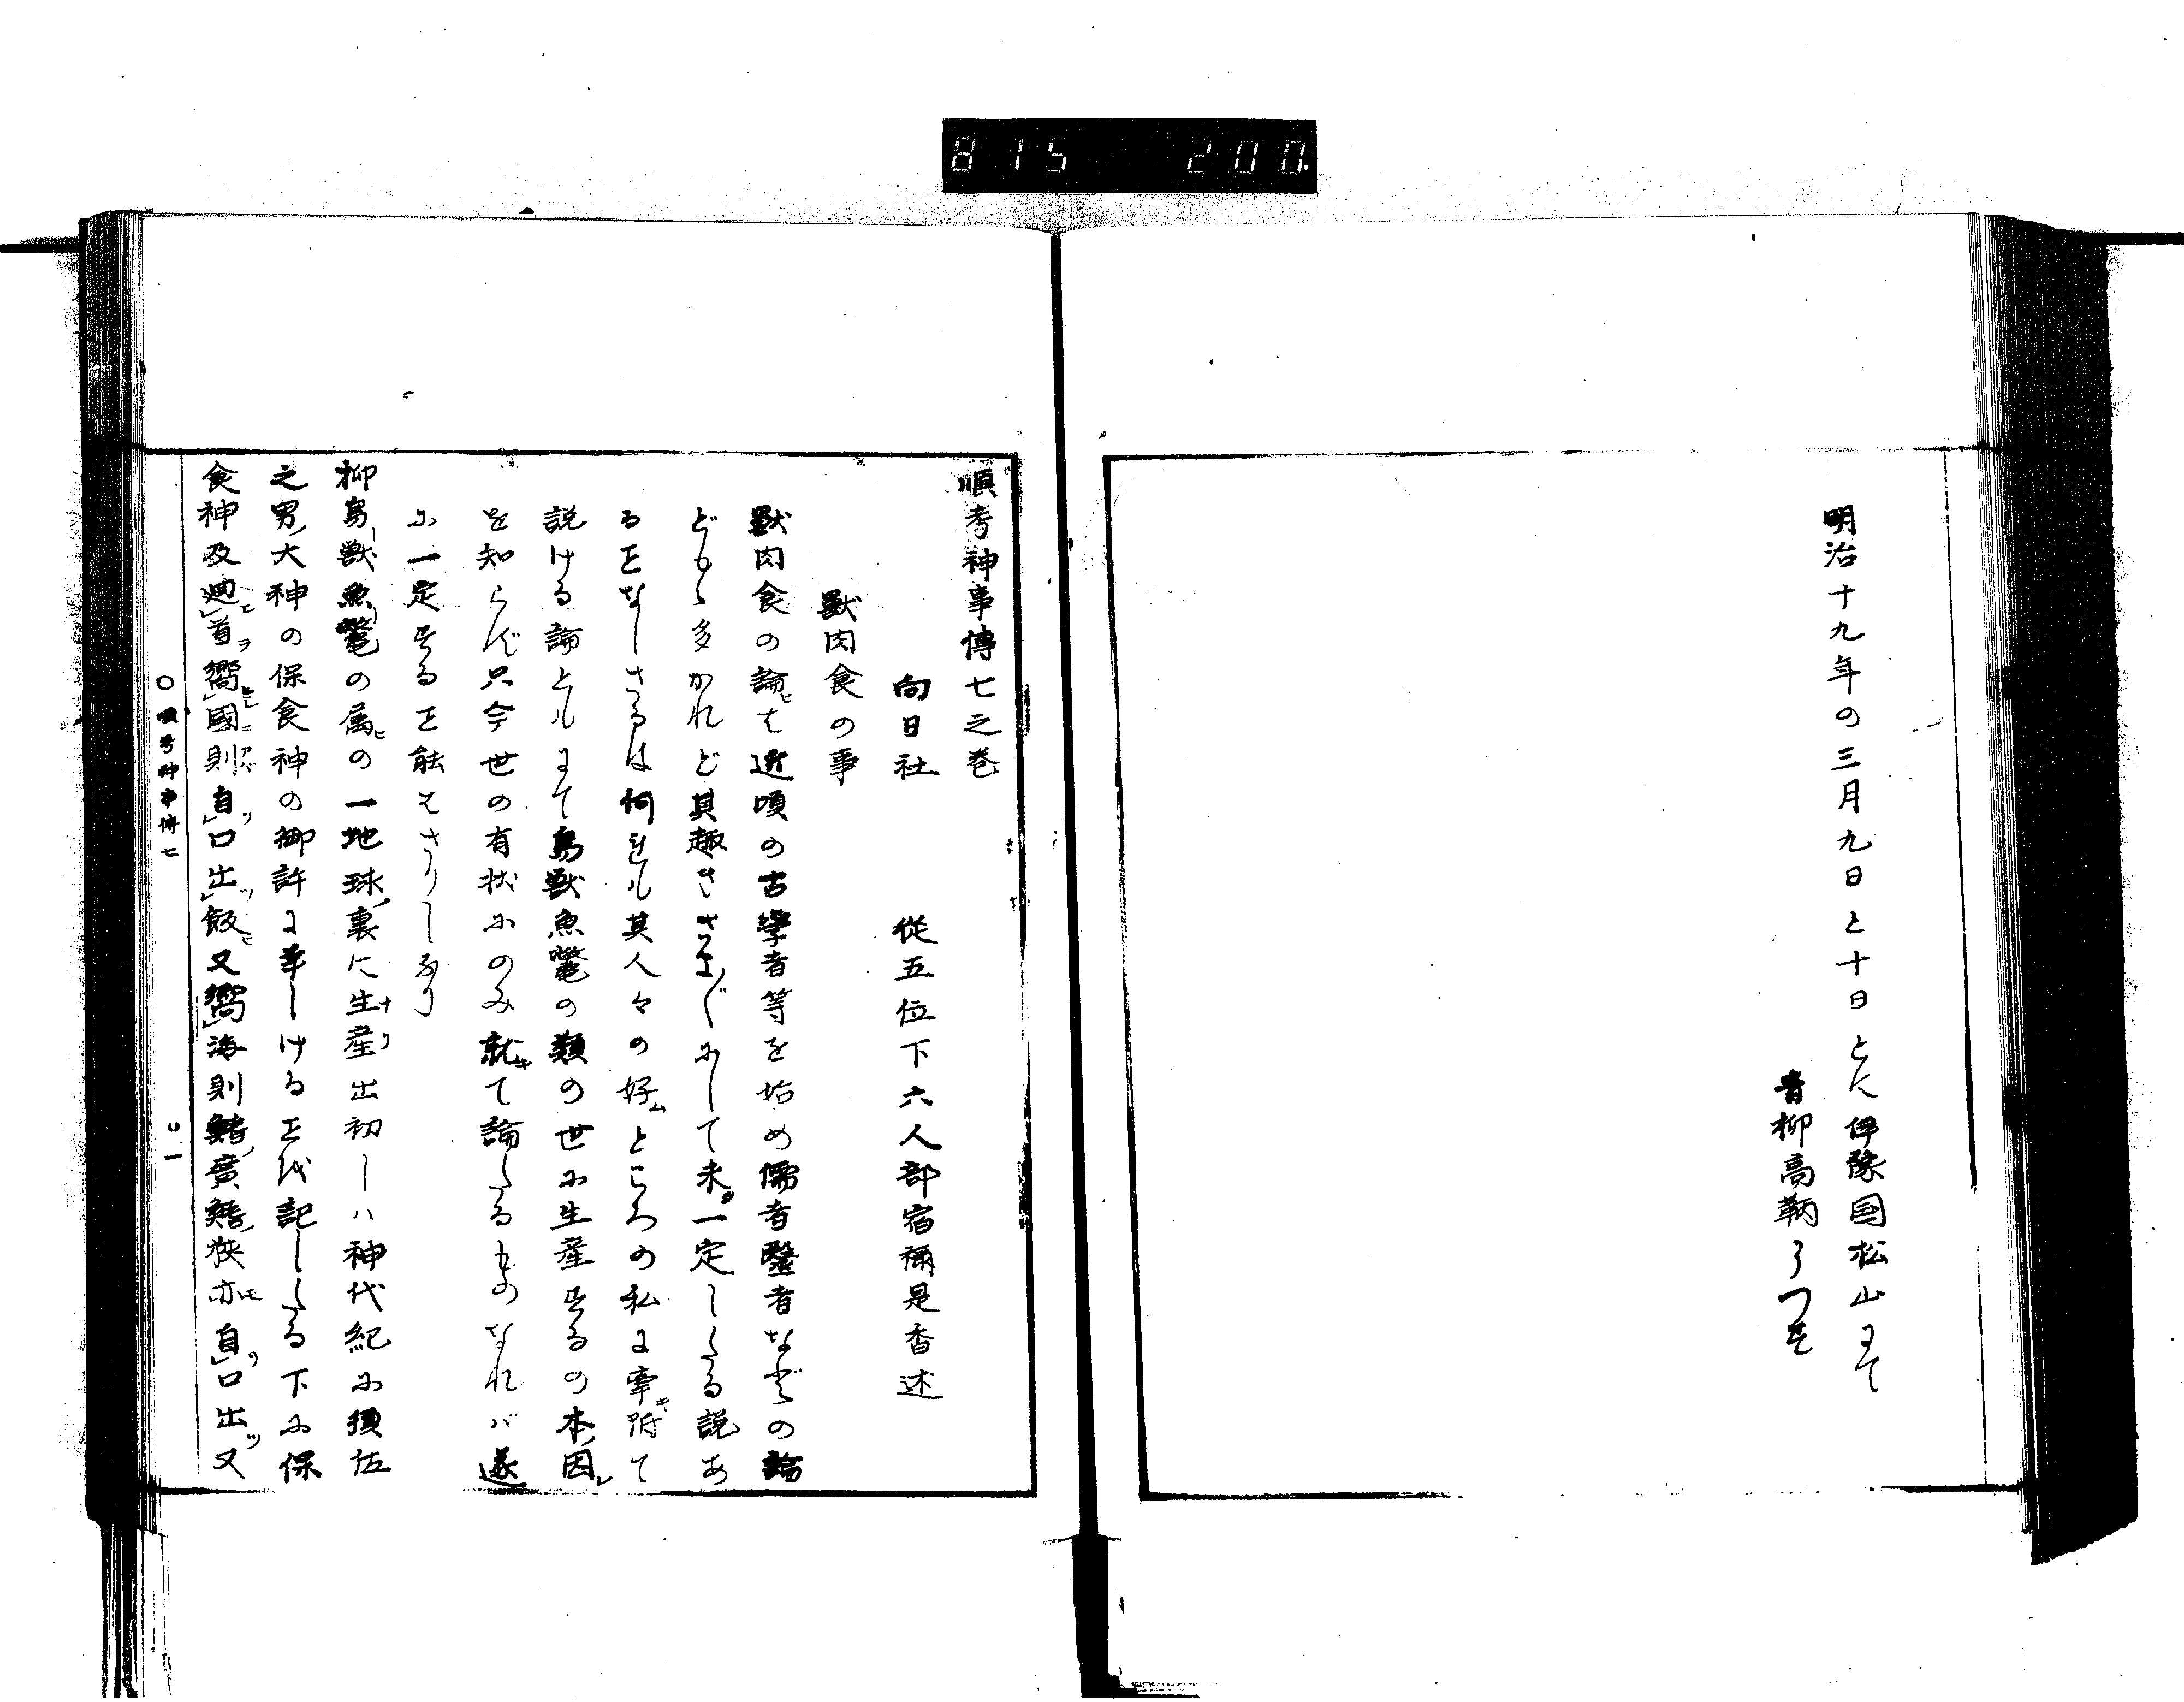 815 200.
明治十九年の三月九日と十日とに伊豫国松山にて
青柳高鞆うつす
順考神事傳七之巻
向日社 從五位下六人部宿禰是香述
獸肉食の事
獸肉食の論ひを近頃の古學者等を始め儒者醫者などの論
ども多かれど其趣きさま〴〵にして未タ一定したる説あ
る𪜈なしさるは何れも其人々の好ムところの私に牽キ附て
説ける論ともにて鳥獸魚鼈の類の世に生産するの本ノ因ル
を知らず只今世の有状にのみ就キて論したるものなれバ遂
に一定する𪜈能はさりしなり
抑鳥獸魚鼈の属ヒの一地球ノ裏に生ナリ産出初しハ神代紀に須佐
之男ノ大神の保食神の御許に幸しける𪜈を記したる下に保
食神及廻首嚮國則自口出飯又嚮海則鰭ノ廣鰭ノ狹亦自口出又
〇順考神事傳七 〇一